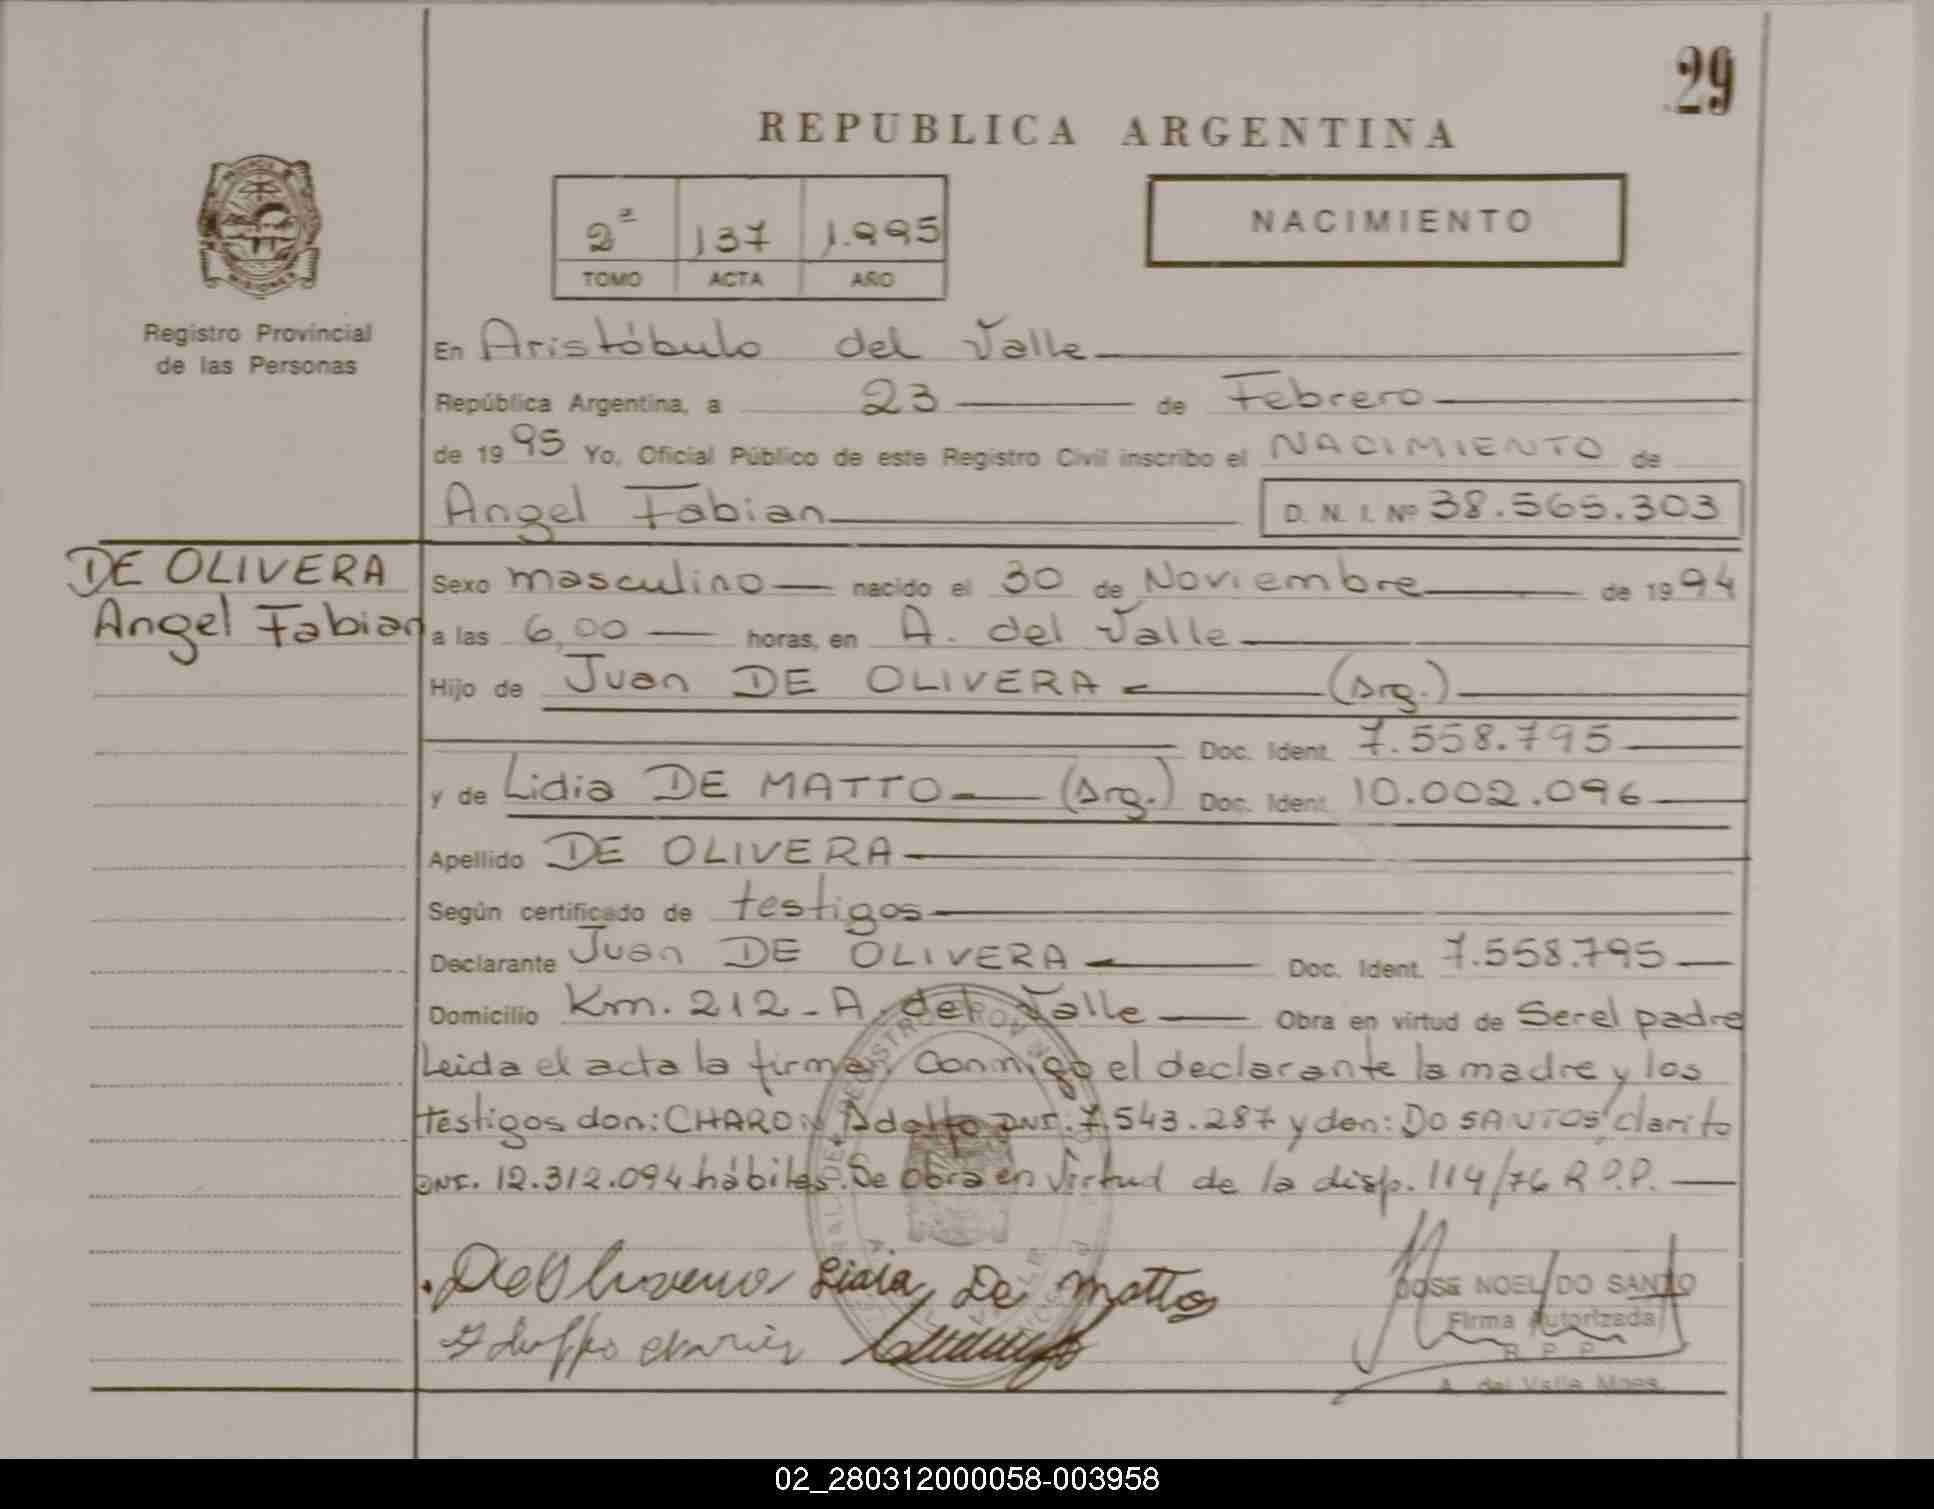 29
REPUBLICA ARGENTINA
2º 137 1.995
TOMO ACTA AÑO
NACIMIENTO
MISIONES
Registro Provincial
de las Personas
En Aristóbulo del Valle
República Argentina, a 23 de Febrero
de 1995 Yo, Oficial Público de este Registro Civil inscribo el NACIMIENTO de
Angel Fabian D. N. I. Nº 38.565.303
DE OLIVERA
Angel Fabian
Sexo masculino nacido el 30 de Noviembre de 1994
a las 6,00 horas, en A. del Valle
Hijo de Juan DE OLIVERA (Arg.)
Doc. Ident. 7.558.795
y de Lidia DE MATTO (Arg.) Doc. Ident. 10.002.096
Apellido DE OLIVERA
Según certificado de testigos
Declarante Juan DE OLIVERA Doc. Ident. 7.558.795
Domicilio Km. 212 - A. del Valle Obra en virtud de Ser el padre
Leida el acta la firman conmigo el declarante la madre y los
testigos don: CHARON Adolfo DNI. 7.543.287 y don: DO SANTOS clarito
DNI. 12.312.094 hábiles. Se obra en virtud de la disp. 114/76 R.P.P.
Lidia De Matto
JOSE NOEL DO SANTO
Firma Autorizada
R. P. P.
A. del Valle Mnes.
02_280312000058-003958